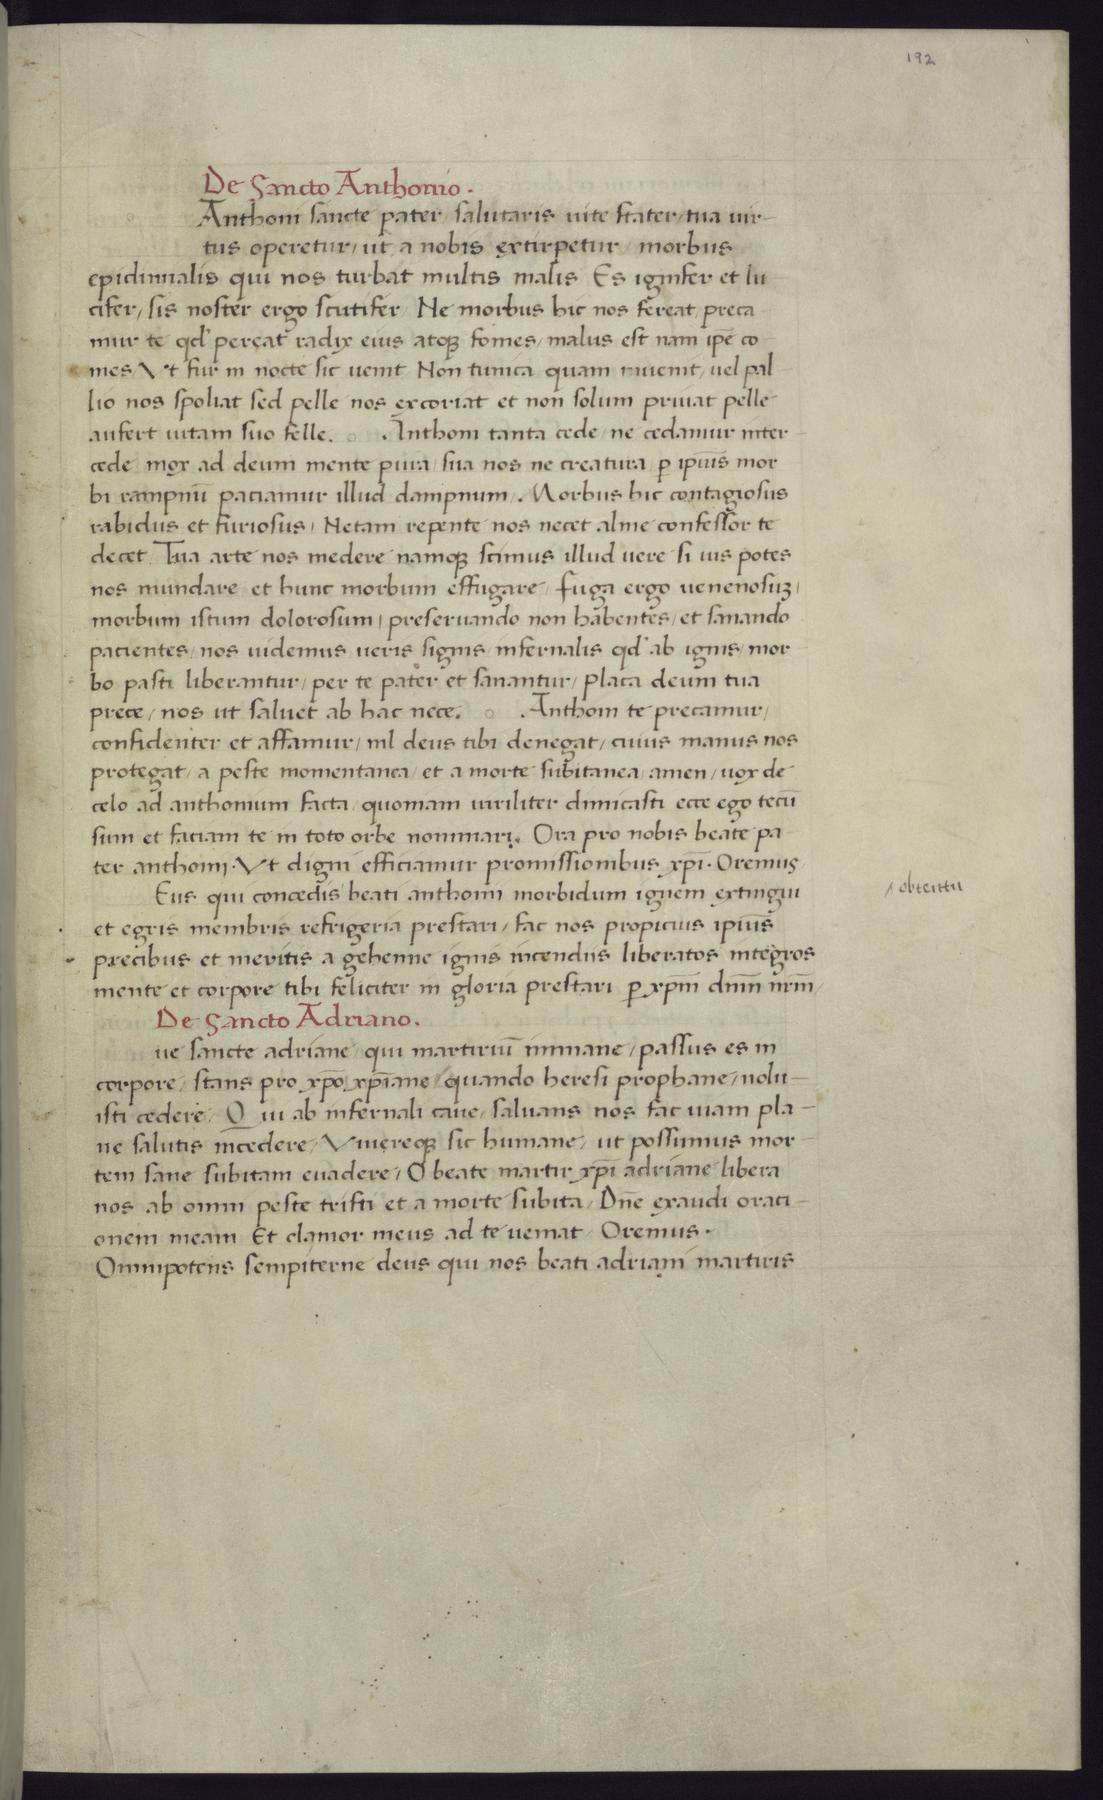 192
De Sancto Anthonio.
Anthoni sancte pater / salutaris uite stater / tua uir-
tus operetur / ut a nobis extirpetur / morbus
epidimialis qui nos turbat multis malis Es ignifer et lu
cifer / sis noster ergo scutifer Ne morbus hic nos fereat preca
mur te qd' pereat radix eius atqꝫ fomes / malus est nam ip̄e co
mes Vt fur in nocte sic uenit Non tunica quam inuenit / uel pal
lio nos spoliat sed pelle nos excoriat et non solum priuat pelle
aufert uitam suo felle. Anthoni tanta cede / ne cedamur inter-
cede mox ad deum mente pura / sua nos ne creatura ꝑ ip̄ius mor
bi rampnū paciamur illud dampnum. Morbus hic contagiosus
rabidus et furiosus / Ne tam repente nos necet alme confessor te
decet Tua arte nos medere namqꝫ scimus illud uere si uis potes
nos mundare et hunc morbum effugare / fuga ergo uenenosuꝫ /
morbum istum dolorosum / preseruando non habentes / et sanando
pacientes / nos uidemus ueris signis / infernalis qd' ab ignis / mor
bo pasti liberantur / per te pater et sanantur / placa deum tua
prece / nos ut saluet ab hac nece. Anthoni te precamur /
confidenter et affamur / nil deus tibi denegat / cuius manus nos
protegat / a peste momentanea / et a morte subitanea amen / uox de
celo ad anthonium facta / quoniam uiriliter dimicasti ecce ego tecū
sum et faciam te in toto orbe nominari. Ora pro nobis beate pa-
ter anthoni. Vt digni efficiamur promissionibus xp̄i. Oremus
Eus qui concedis beati anthonii morbidum ignem extingui
/ obtentu
et egris membris refrigeria prestari / fac nos propicius ip̄ius
precibus et meritis a gehenne ignis incendiis liberatos integros
mente et corpore tibi feliciter in gloria prestari ꝑ xp̄m dn̄m nr̄m /
De Sancto Adriano.
ue sancte adriane qui martiriū inmane / passus es in
corpore / stans pro xp̄o xp̄iane / quando heresi prophane / nolu-
isti cedere / Qui ab infernali caue / saluans nos fac uiam pla-
ne salutis incedere / Viuereqꝫ sic humane / ut possumus mor-
tem sane subitam euadere / O beate martir xp̄i adriane libera
nos ab omni peste tristi et a morte subita / Dn̄e exaudi orati-
onem meam Et clamor meus ad te ueniat Oremus.
Omnipotens sempiterne deus qui nos beati adriani martiris